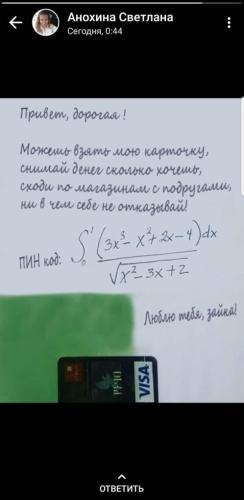 Анохина Светлана
Сегодня, 0:44
Привет, дорогая!
Можешь взять мою карточку,
снимай денег сколько хочешь,
сходи по магазинам с подругами,
ни в чем себе не отказывай!
ПИН код: ∫₀¹ (3x³ - x² + 2x - 4)dx / √(x² - 3x + 2)
Люблю тебя, зайка!
VISA
ОТВЕТИТЬ